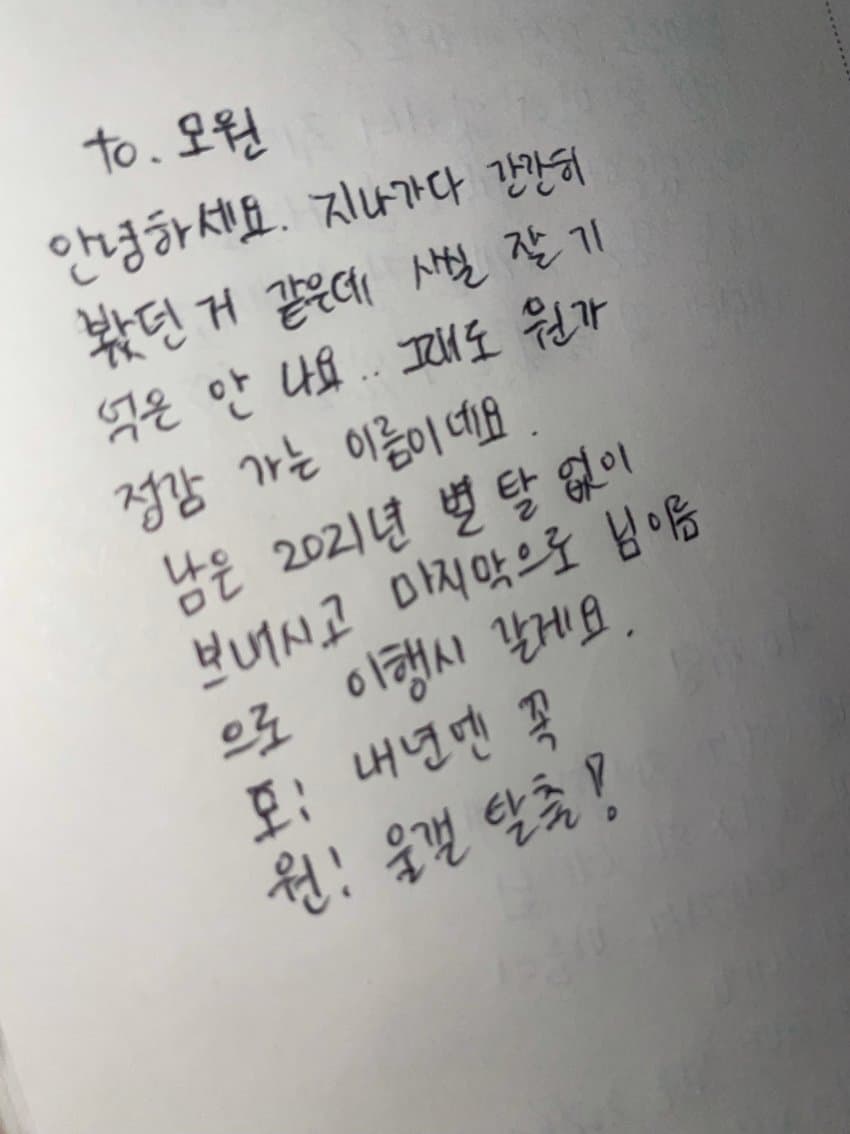 to.모원
안녕하세요. 지나가다 간간히
봤던 거 같은데 사실 잘 기
억은 안 나요.. 그래도 뭔가
정감 가는 이름이네요.
남은 2021년 별 탈 없이
보내시고 마지막으로 님이름
으로 이행시 갈게요.
모! 내년엔 꼭
원! 울갤 탈출!